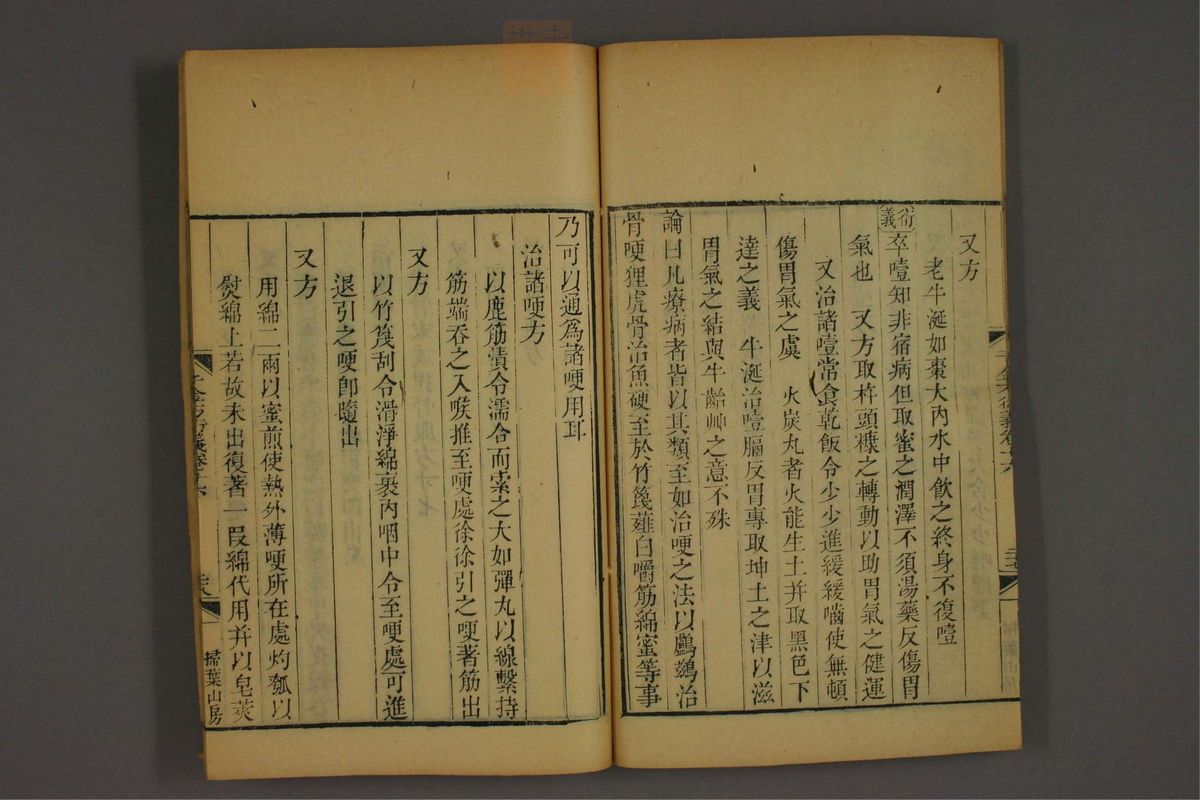 又方
老牛涎如棗大內水中飲之終身不復噎
衍義
卒噎知非宿病但取蜜之潤澤不須湯藥反傷胃
氣也 又方取杵頭糠之轉動以助胃氣之健運
又治諸噎常食乾飯令少少進緩緩嚙使無頓
傷胃氣之虞 火炭丸者火能生土并取黑色下
達之義 牛涎治噎膈反胃專取坤土之津以滋
胃氣之結與牛齝艸之意不殊
論曰凡療病者皆以其類至如治哽之法以鸕鷀治
骨哽狸虎骨治魚硬至於竹篾薤白嚼筋綿蜜等事
乃可以通爲諸哽用耳
治諸哽方
以鹿筋漬令濡合而索之大如彈丸以線繫持
筋端吞之入喉推至哽處徐徐引之哽著筋出
又方
以竹篾刮令滑淨綿裹內咽中令至哽處可進
退引之哽卽隨出
又方
用綿二兩以蜜煎使熱外薄哽所在處灼瓠以
熨綿上若故未出復著一叚綿代用并以皂莢
千金方衍義卷十六
掃葉山房